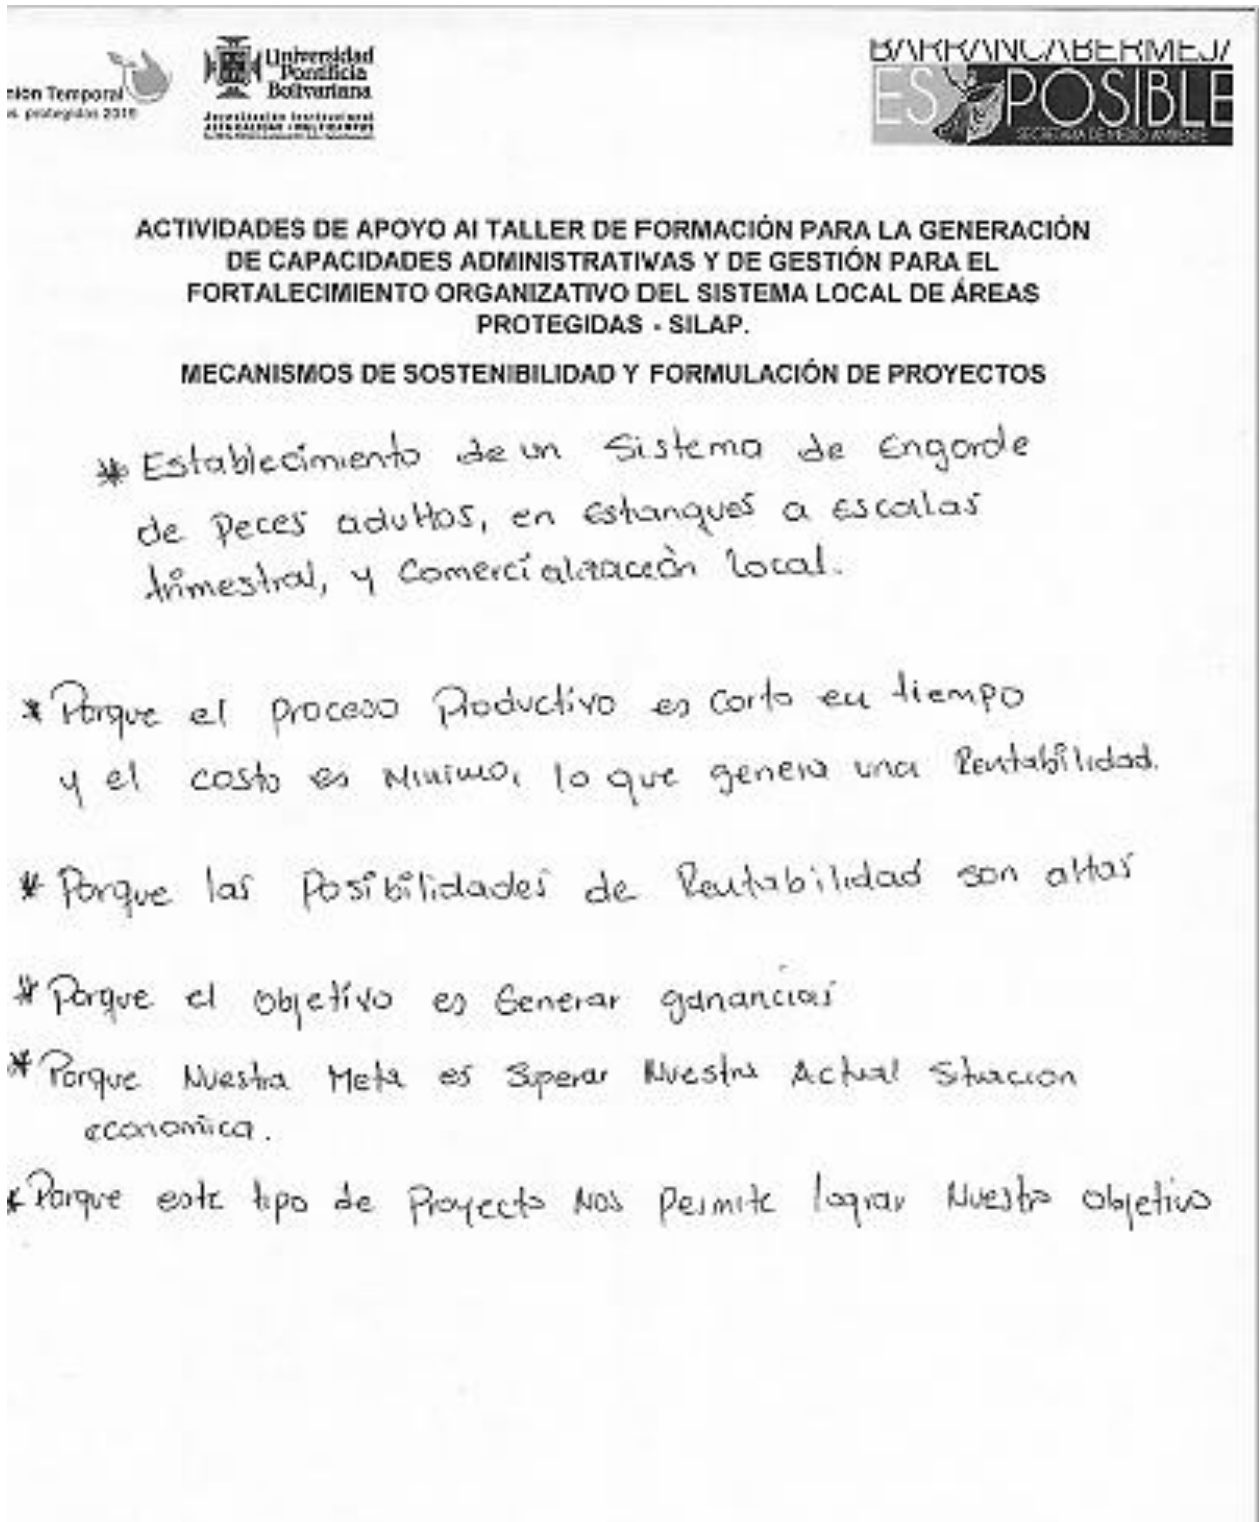 ión Temporal
s. protegidas 2019
Universidad
Pontificia
Bolivariana
BARRANCABERMEJA
ES POSIBLE
SECRETARIA DE MEDIO AMBIENTE
ACTIVIDADES DE APOYO Al TALLER DE FORMACIÓN PARA LA GENERACIÓN
DE CAPACIDADES ADMINISTRATIVAS Y DE GESTIÓN PARA EL
FORTALECIMIENTO ORGANIZATIVO DEL SISTEMA LOCAL DE ÁREAS
PROTEGIDAS - SILAP.
MECANISMOS DE SOSTENIBILIDAD Y FORMULACIÓN DE PROYECTOS
* Establecimiento de un Sistema de Engorde
de Peces adultos, en estanques a escalas
trimestral, y Comercialización local.
* Porque el proceso Productivo es corto en tiempo
y el costo es Minimo, lo que genera una Rentabilidad.
* Porque las Posibilidades de Rentabilidad son altas
* Porque el objetivo es Generar ganancias
* Porque Nuestra Meta es Superar Nuestra Actual Situacion
economica.
* Porque este tipo de Proyecto Nos Permite lograr Nuestro objetivo